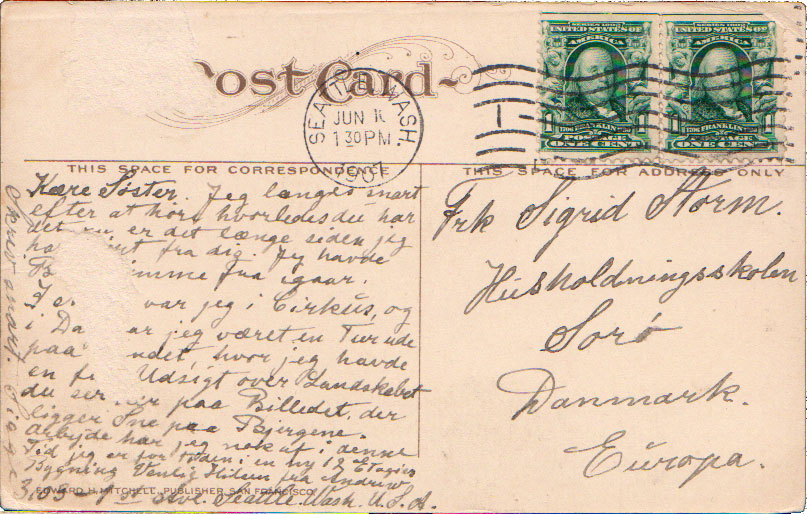 Post Card
SEATTLE WASH.
JUN 1
1 30 PM
1907
SERIES 1902
UNITED STATES OF
AMERICA
1706 FRANKLIN 1790
1 POSTAGE 1
ONE CENT
SERIES 1902
UNITED STATES OF
AMERICA
1706 FRANKLIN 1790
1 POSTAGE 1
ONE CENT
THIS SPACE FOR CORRESPONDENCE
THIS SPACE FOR ADDRESS ONLY
Kære Søster. Jeg længes snart
efter at høre hvorledes du har
det nu, er det længe siden jeg
ha fra dig. Jeg havde
fra igaar.
var jeg i Cirkus, og
i Da ar jeg været en Tur ude
paa ndet, hvor jeg havde
en Udsigt over Landskabet
du ser her paa Billedet, der
ligger Sne paa Bjergene.
Arbejde har jeg nok af i denne
Tid jeg er for Tiden i en ny 12 Etagies
Bygning Venlig Hilsen fra Andrew
Ave. Seattle. Wash. U.S.A.
Skriv snart.
EDWARD H. MITCHELL, PUBLISHER, SAN FRANCISCO
Frk Sigrid Storm.
Husholdningsskolen
Sorø
Danmark.
Europa.